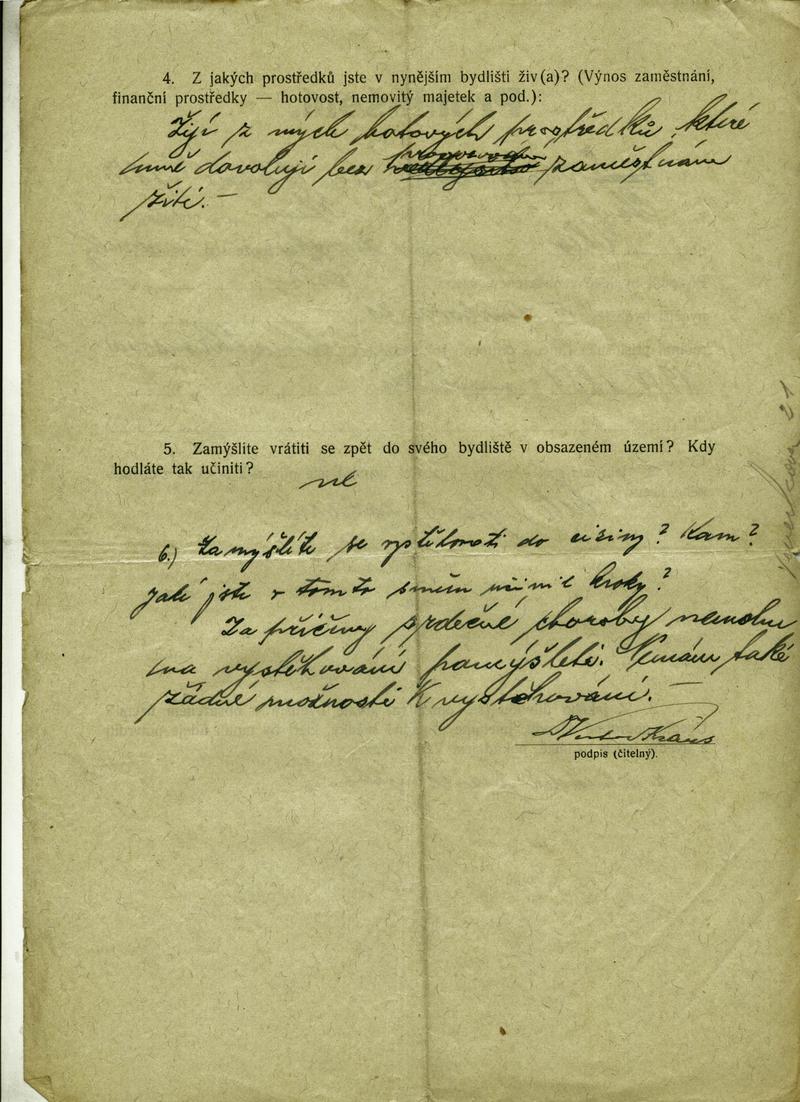 4. Z jakých prostředků jste v nynějším bydlišti živ(a)? (Výnos zaměstnání,
finanční prostředky — hotovost, nemovitý majetek a pod.):
Žiji z mých hotových prostředků, které
mně dovolují bez zaměstnání
žíti. —
5. Zamýšlíte vrátiti se zpět do svého bydliště v obsazeném území? Kdy
hodláte tak učiniti?
ne
6.) Zamýšlíte se vystěhovati do ciziny? Kam?
Jaké jste v tomto směru učinil kroky?
Za příčiny srdečné choroby nemohu
na vystěhování pomýšleti. Nemám také
žádné možnosti k vystěhování. —
Kraus
podpis (čitelný).